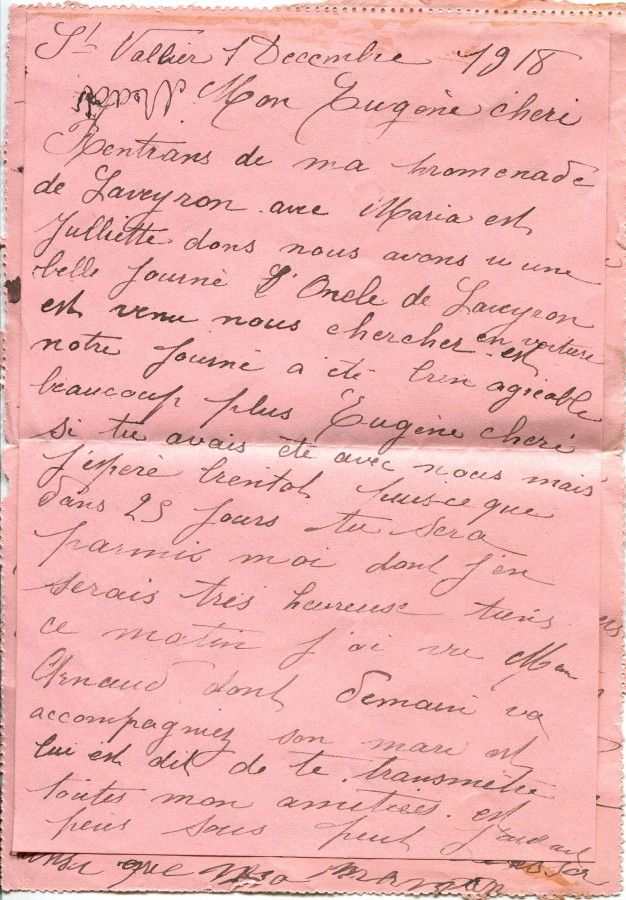 St Vallier 1 Decembre 1918
Mon Eugène cheri
Rentrans de ma promenade
de Laveyron avec Maria est
Julliette dons nous avons u une
belle journé L'Oncle de Laveyron
est venu nous chercher en voiture est
notre journé a été bien agréable
beaucoup plus Eugène cheri
si tu avais été avec nous mais
j'espère bientot puisce que
dans 25 jours tu sera
parmis moi dont j'en
serais très heureuse tiens
ce matin j'ai vu Mme
Arnaud dont demain va
accompagniez son mari est
lui est dit de te transmetre
toutes mon amitiées est
puis sous peut
que ma maman